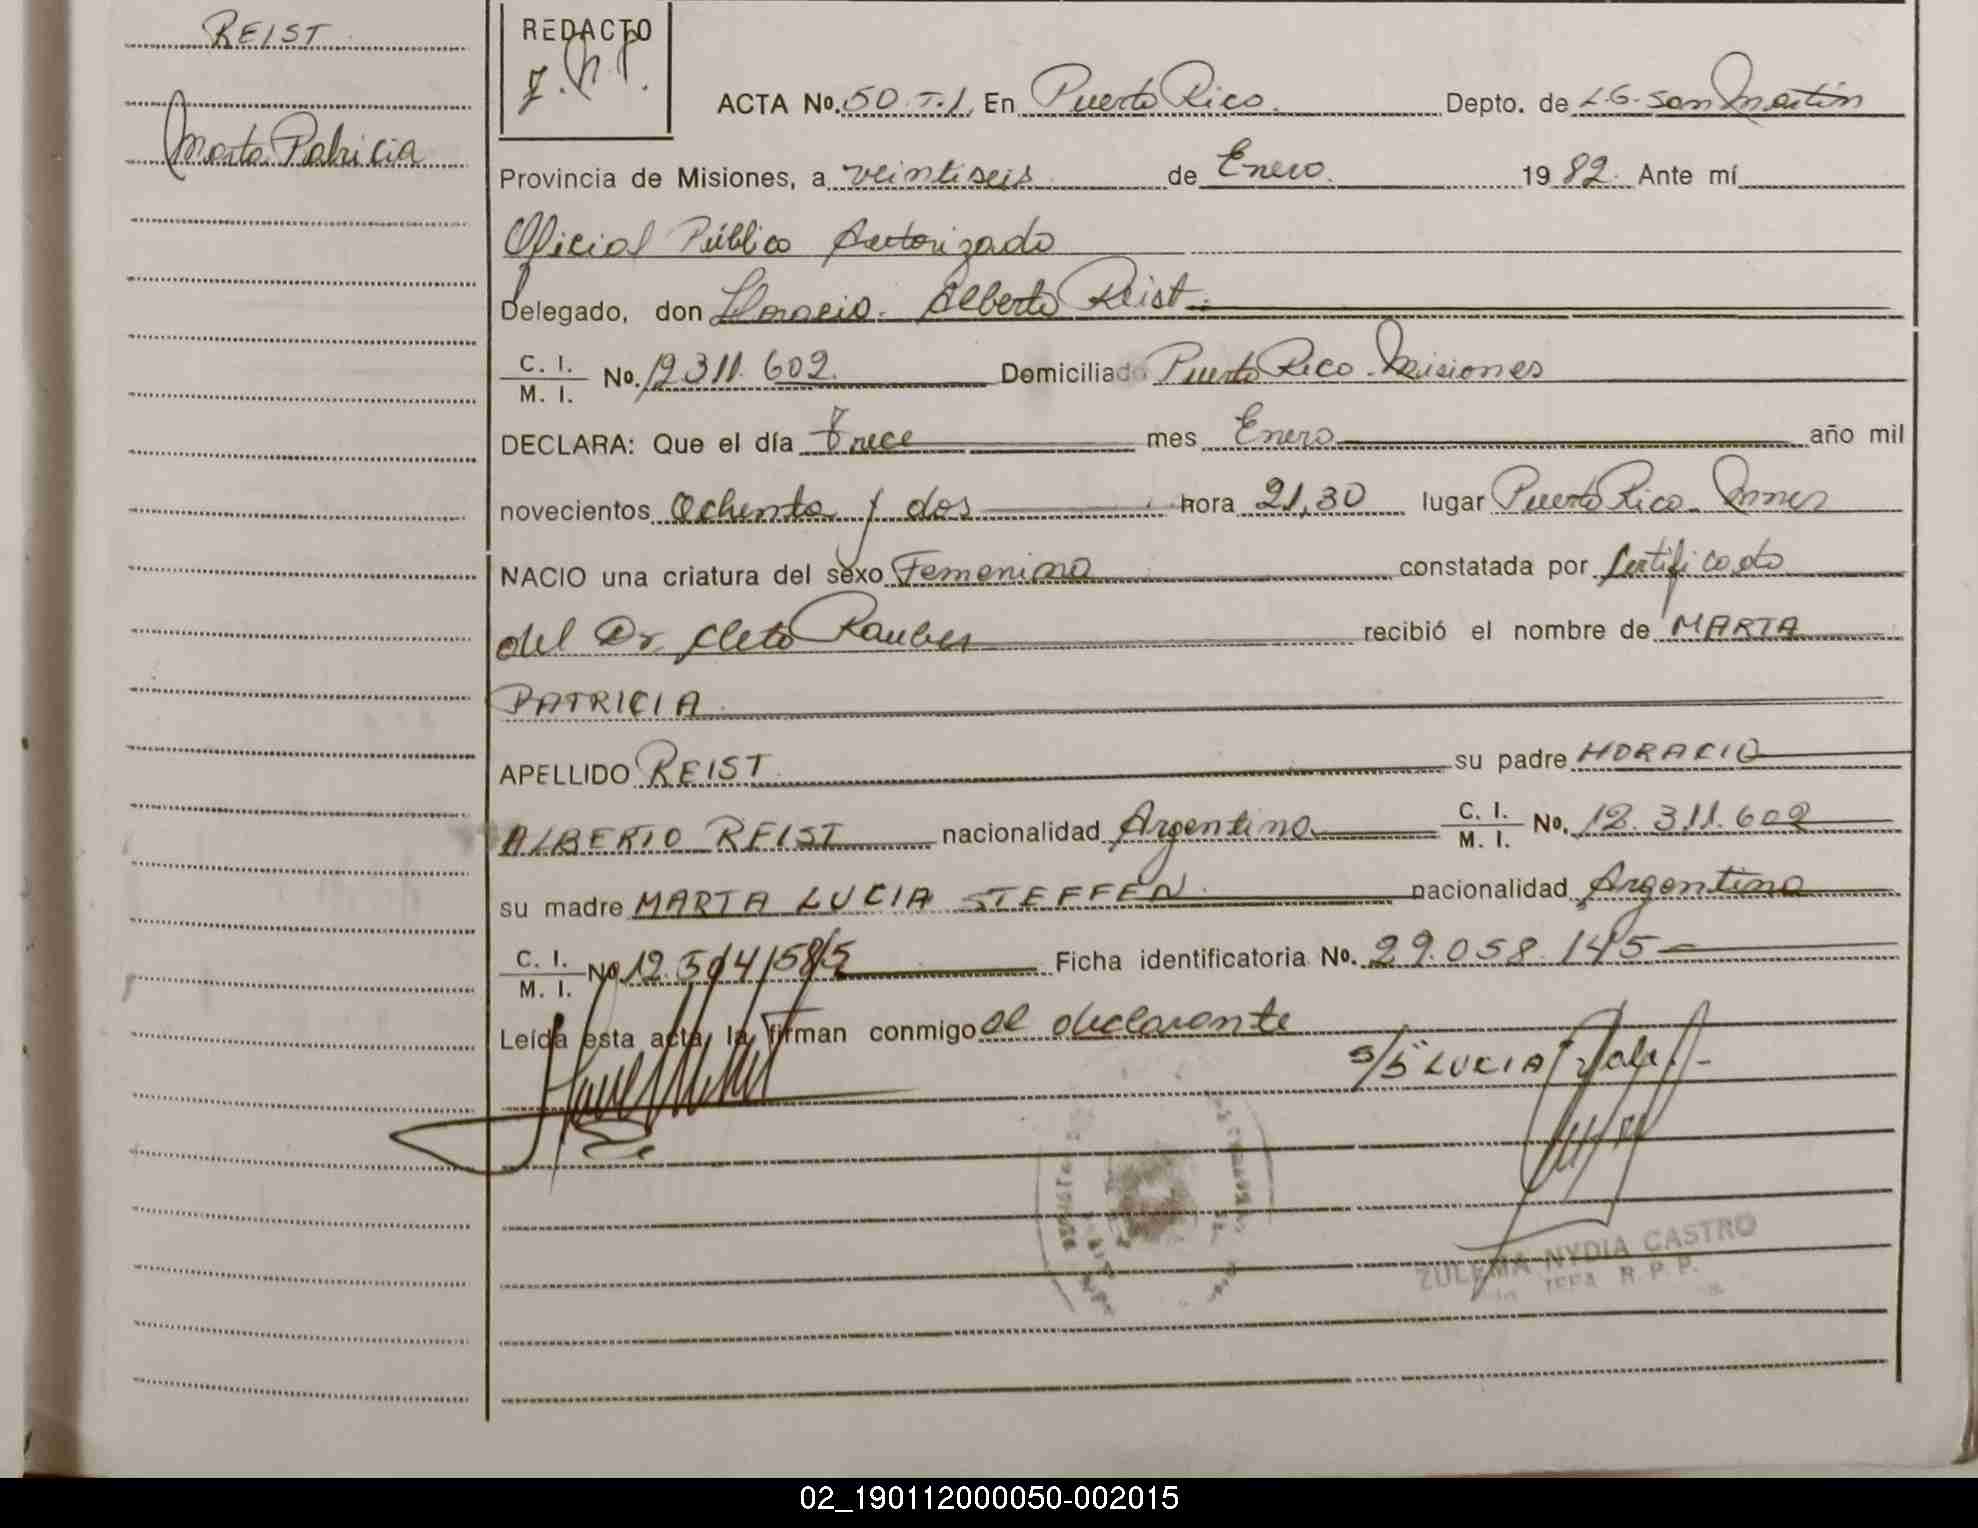 REIST
Marta Patricia
REDACTO
ACTA No. 50 T.1. En Puerto Rico. Depto. de L.G. San Martín
Provincia de Misiones, a veintiseis de Enero. 1982. Ante mí
Oficial Público Autorizado
Delegado, don Horacio Alberto Reist
C. I. / M. I. No. 12 311. 602. Domiciliado Puerto Rico Misiones
DECLARA: Que el día trece mes Enero año mil
novecientos Ochenta y dos hora 21,30 lugar Puerto Rico Mnes
NACIO una criatura del sexo Femenino constatada por Certificado
del Dr. Cleto Rauber recibió el nombre de MARTA
PATRICIA
APELLIDO REIST su padre HORACIO
ALBERTO REIST nacionalidad Argentina C. I. / M. I. No. 12. 311. 602
su madre MARTA LUCIA STEFFEN nacionalidad Argentina
C. I. / M. I. No 12. 504 585 Ficha identificatoria No. 29.058.145
Leída esta acta, la firman conmigo el declarante
s/b "LUCIA" Vale.
ZULEMA NYDIA CASTRO
JEFA R. P. P.
02_190112000050-002015